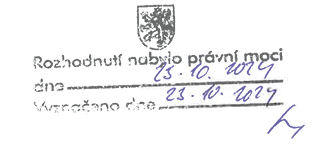 Rozhodnutí nabylo právní moci
dne 23.10.2024
Vyznačeno dne 23.10.2024